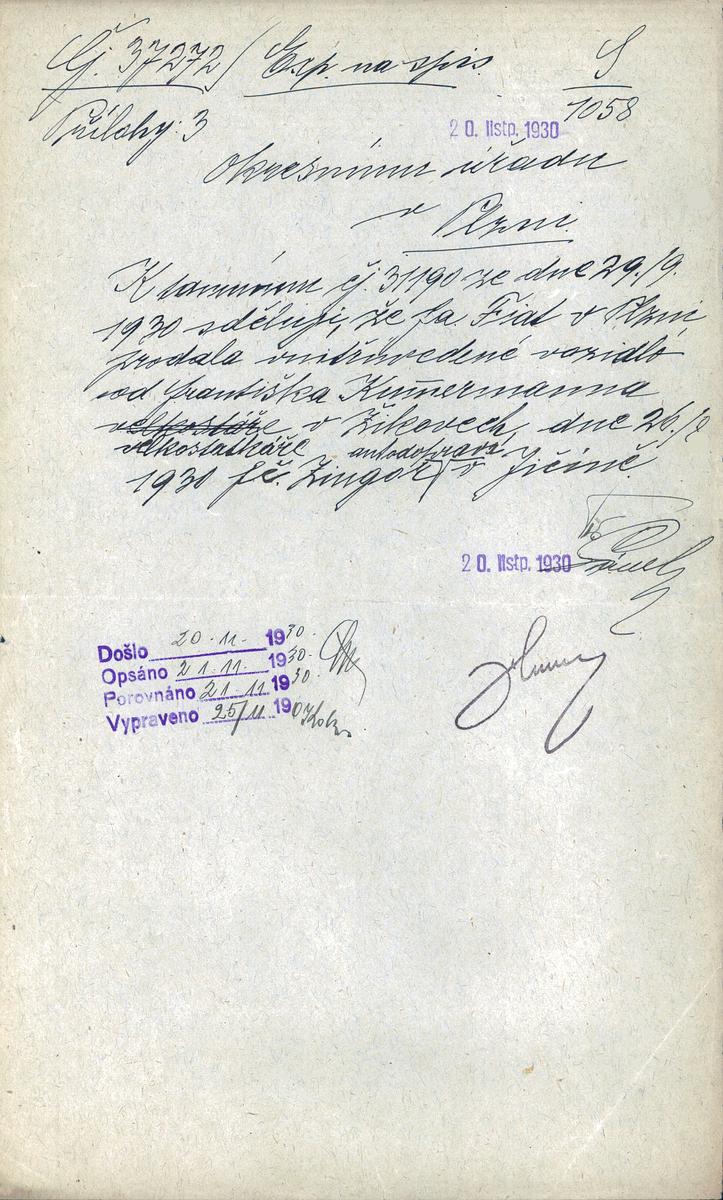 Čj. 37272/ Exp. na spis. S
1058
Přílohy: 3
20. listp. 1930
Okresnímu úřadu
v Plzni.
K tamnímu čj. 31190 ze dne 29./9.
1930 sděluji, že fa. Fiat v Plzni
prodala vnitřuvedené vozidlo
od Františka Kummermanna
v Žikovech, dne 26./
velkostatkáře autodopravě
1930 fě. Zingor v Jičíně.
20. listp. 1930
Došlo 20. 11. 1930.
Opsáno 21. 11. 1930.
Porovnáno 21. 11. 1930.
Vypraveno 25/11 1930